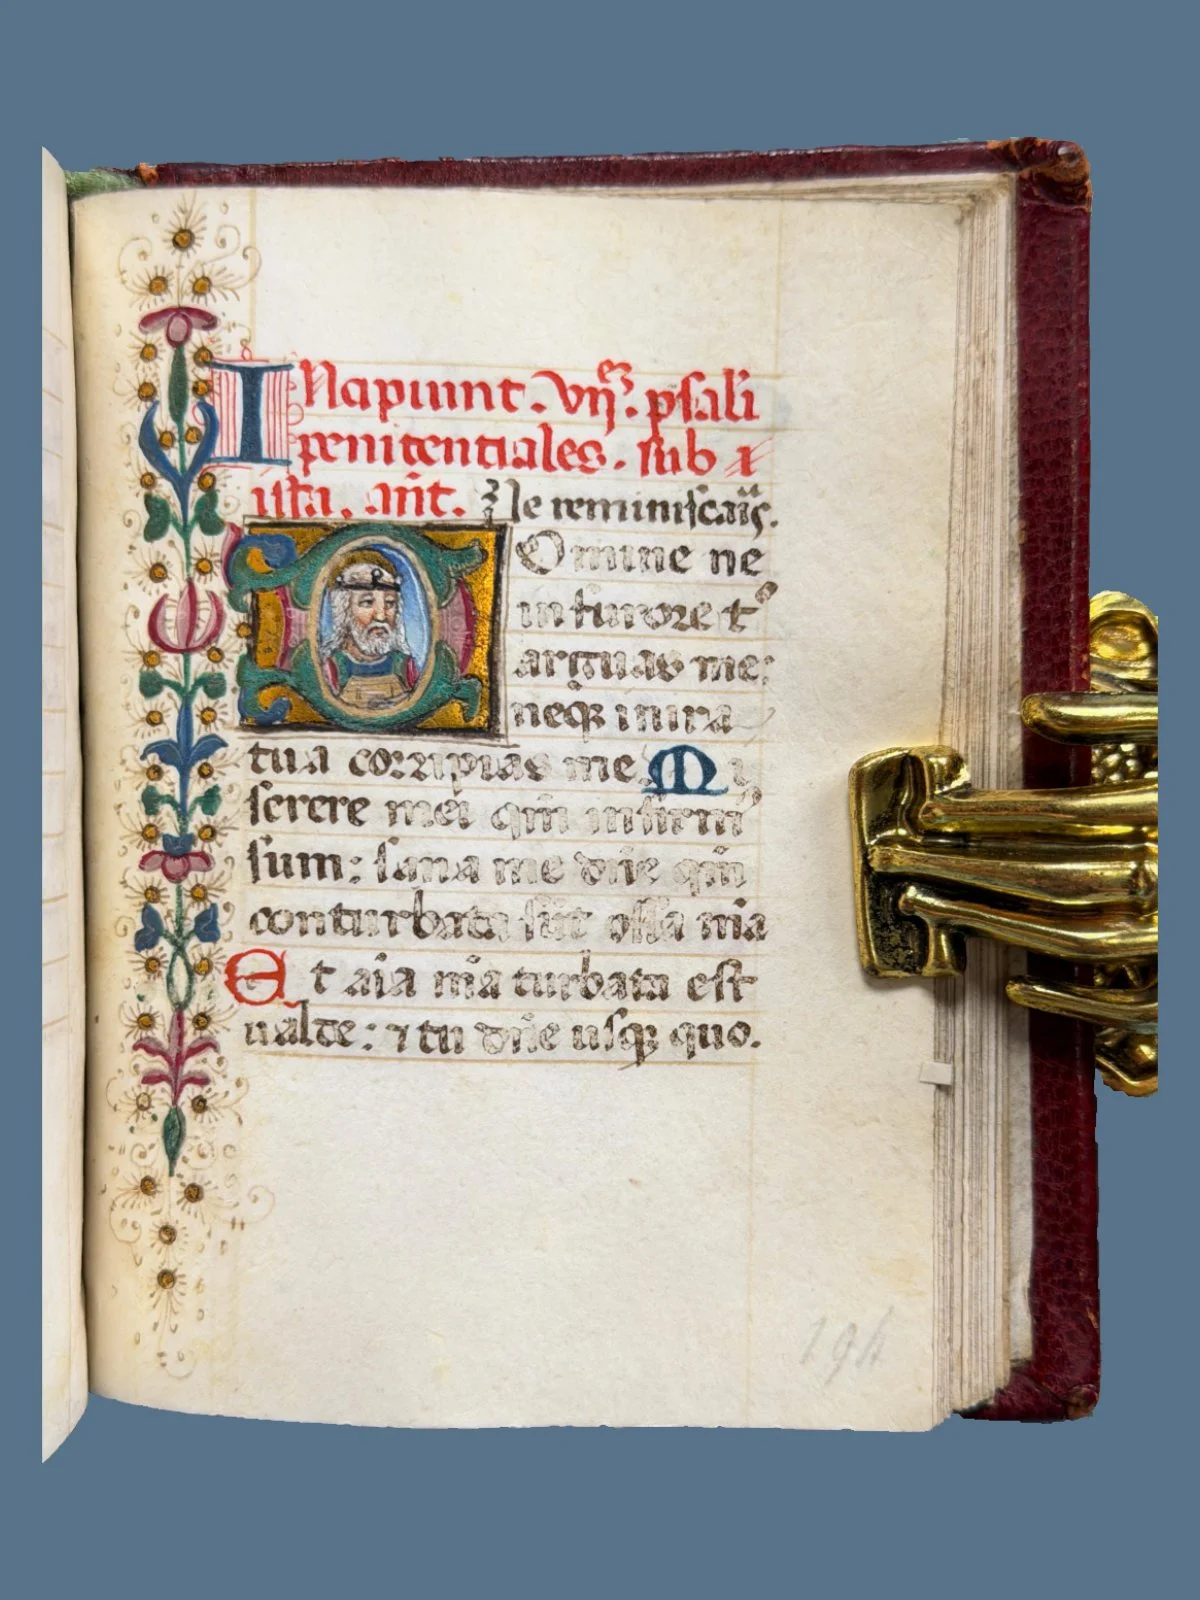 INcipiunt. vij. psalɪ̃
penitentiales. sub
ista. añt. Ne reminiscaĩs.
Domine ne
in furore tᵒ
arguas me:
neqꝫ in ira
tua corripias me. Mi
serere mei qm̃ infirmꝰ
sum: sana me dñe qm̃
conturbata sũt ossa mĩa
Et aĩa mĩa turbata est
ualde: ⁊ tu dñe usqꝫ quo.
194